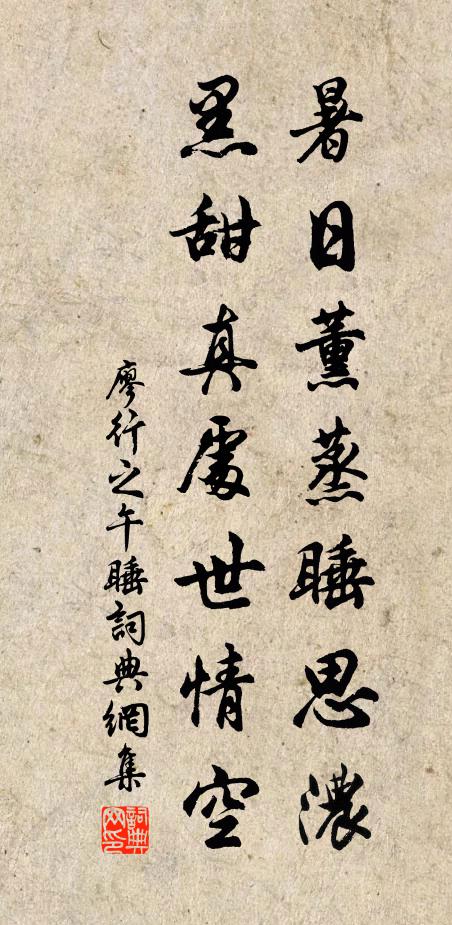 暑日薰蒸睡思濃
黑甜真處世情空
廖行之午睡詞典網集
詞典网印